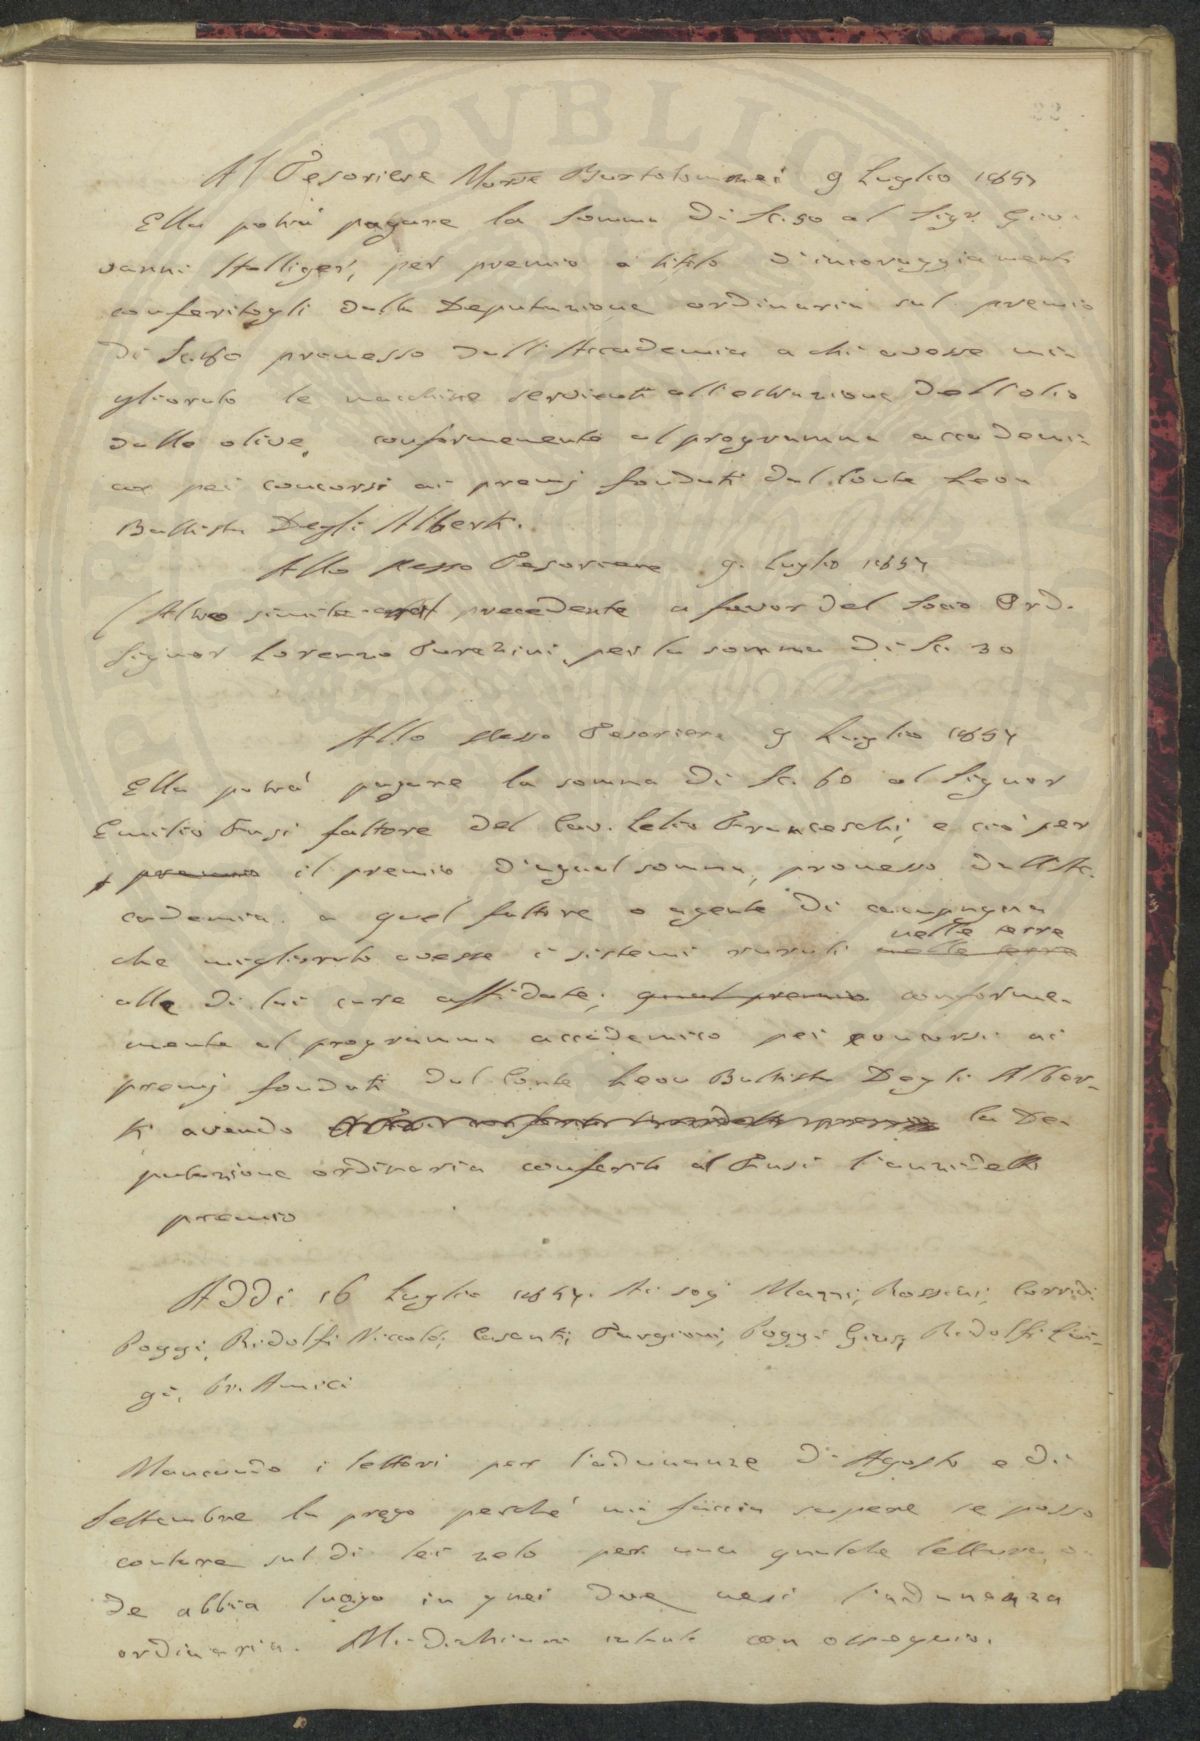 22
Al Tesoriere March.e Bartolommei 9 Luglio 1857
Ella potrà pagare la somma di Sc. 50 al Sigr. Gio-
vanni premio a titolo d'incoraggiamento
conferitogli dalla Deputazione ordinaria sul premio
di Sc. promesso dall'Accademia a chi avesse mi-
gliorato le macchine servienti all'estrazione dell'olio
dalle olive, conformemente al programma accademi-
co pei concorsi ai premj fondati dal Conte Leon
Battista Degli Alberti.
Allo stesso Tesoriere 9. Luglio 1857
(Altro simile al precedente a favor del Socio Ord.
Signor Lorenzo Turchini per la somma di Sc. 30
Allo stesso Tesoriere 9 Luglio 1857
Ella potrà pagare la somma di Sc. 60 al Signor
Emilio Fusi fattore del Cav. Lelio Franceschi, e ciò per
premio il premio d'ugual somma, promesso dall'Ac-
cademia a quel fattore o agente di campagna
nelle terre
che migliorato avesse i sistemi rurali nelle terre
alle di lui cure affidate; qual premio conforme-
mente al programma accademico pei concorsi ai
premj fondati dal Conte Leon Battista Degli Alber-
ti avendo la De-
putazione ordinaria conferito al Fusi l'anzidetto
premio
Addì 16 Luglio 1857. Ai socj Magni, Rossini, Corridi
Poggi, Ridolfi Niccolò, Casanti, Targioni, Poggi Gius., Ridolfi Lui-
gi, Pr. Amici
Mancando i lettori per l'adunanze di Agosto e di
Settembre la prego perché mi faccia sapere se posso
contare sul di lei zelo per una qualche lettura, o-
de abbia luogo in quei due mesi l'adunanza
ordinaria. Mi dichiaro intanto con ossequio.
PVBLIC